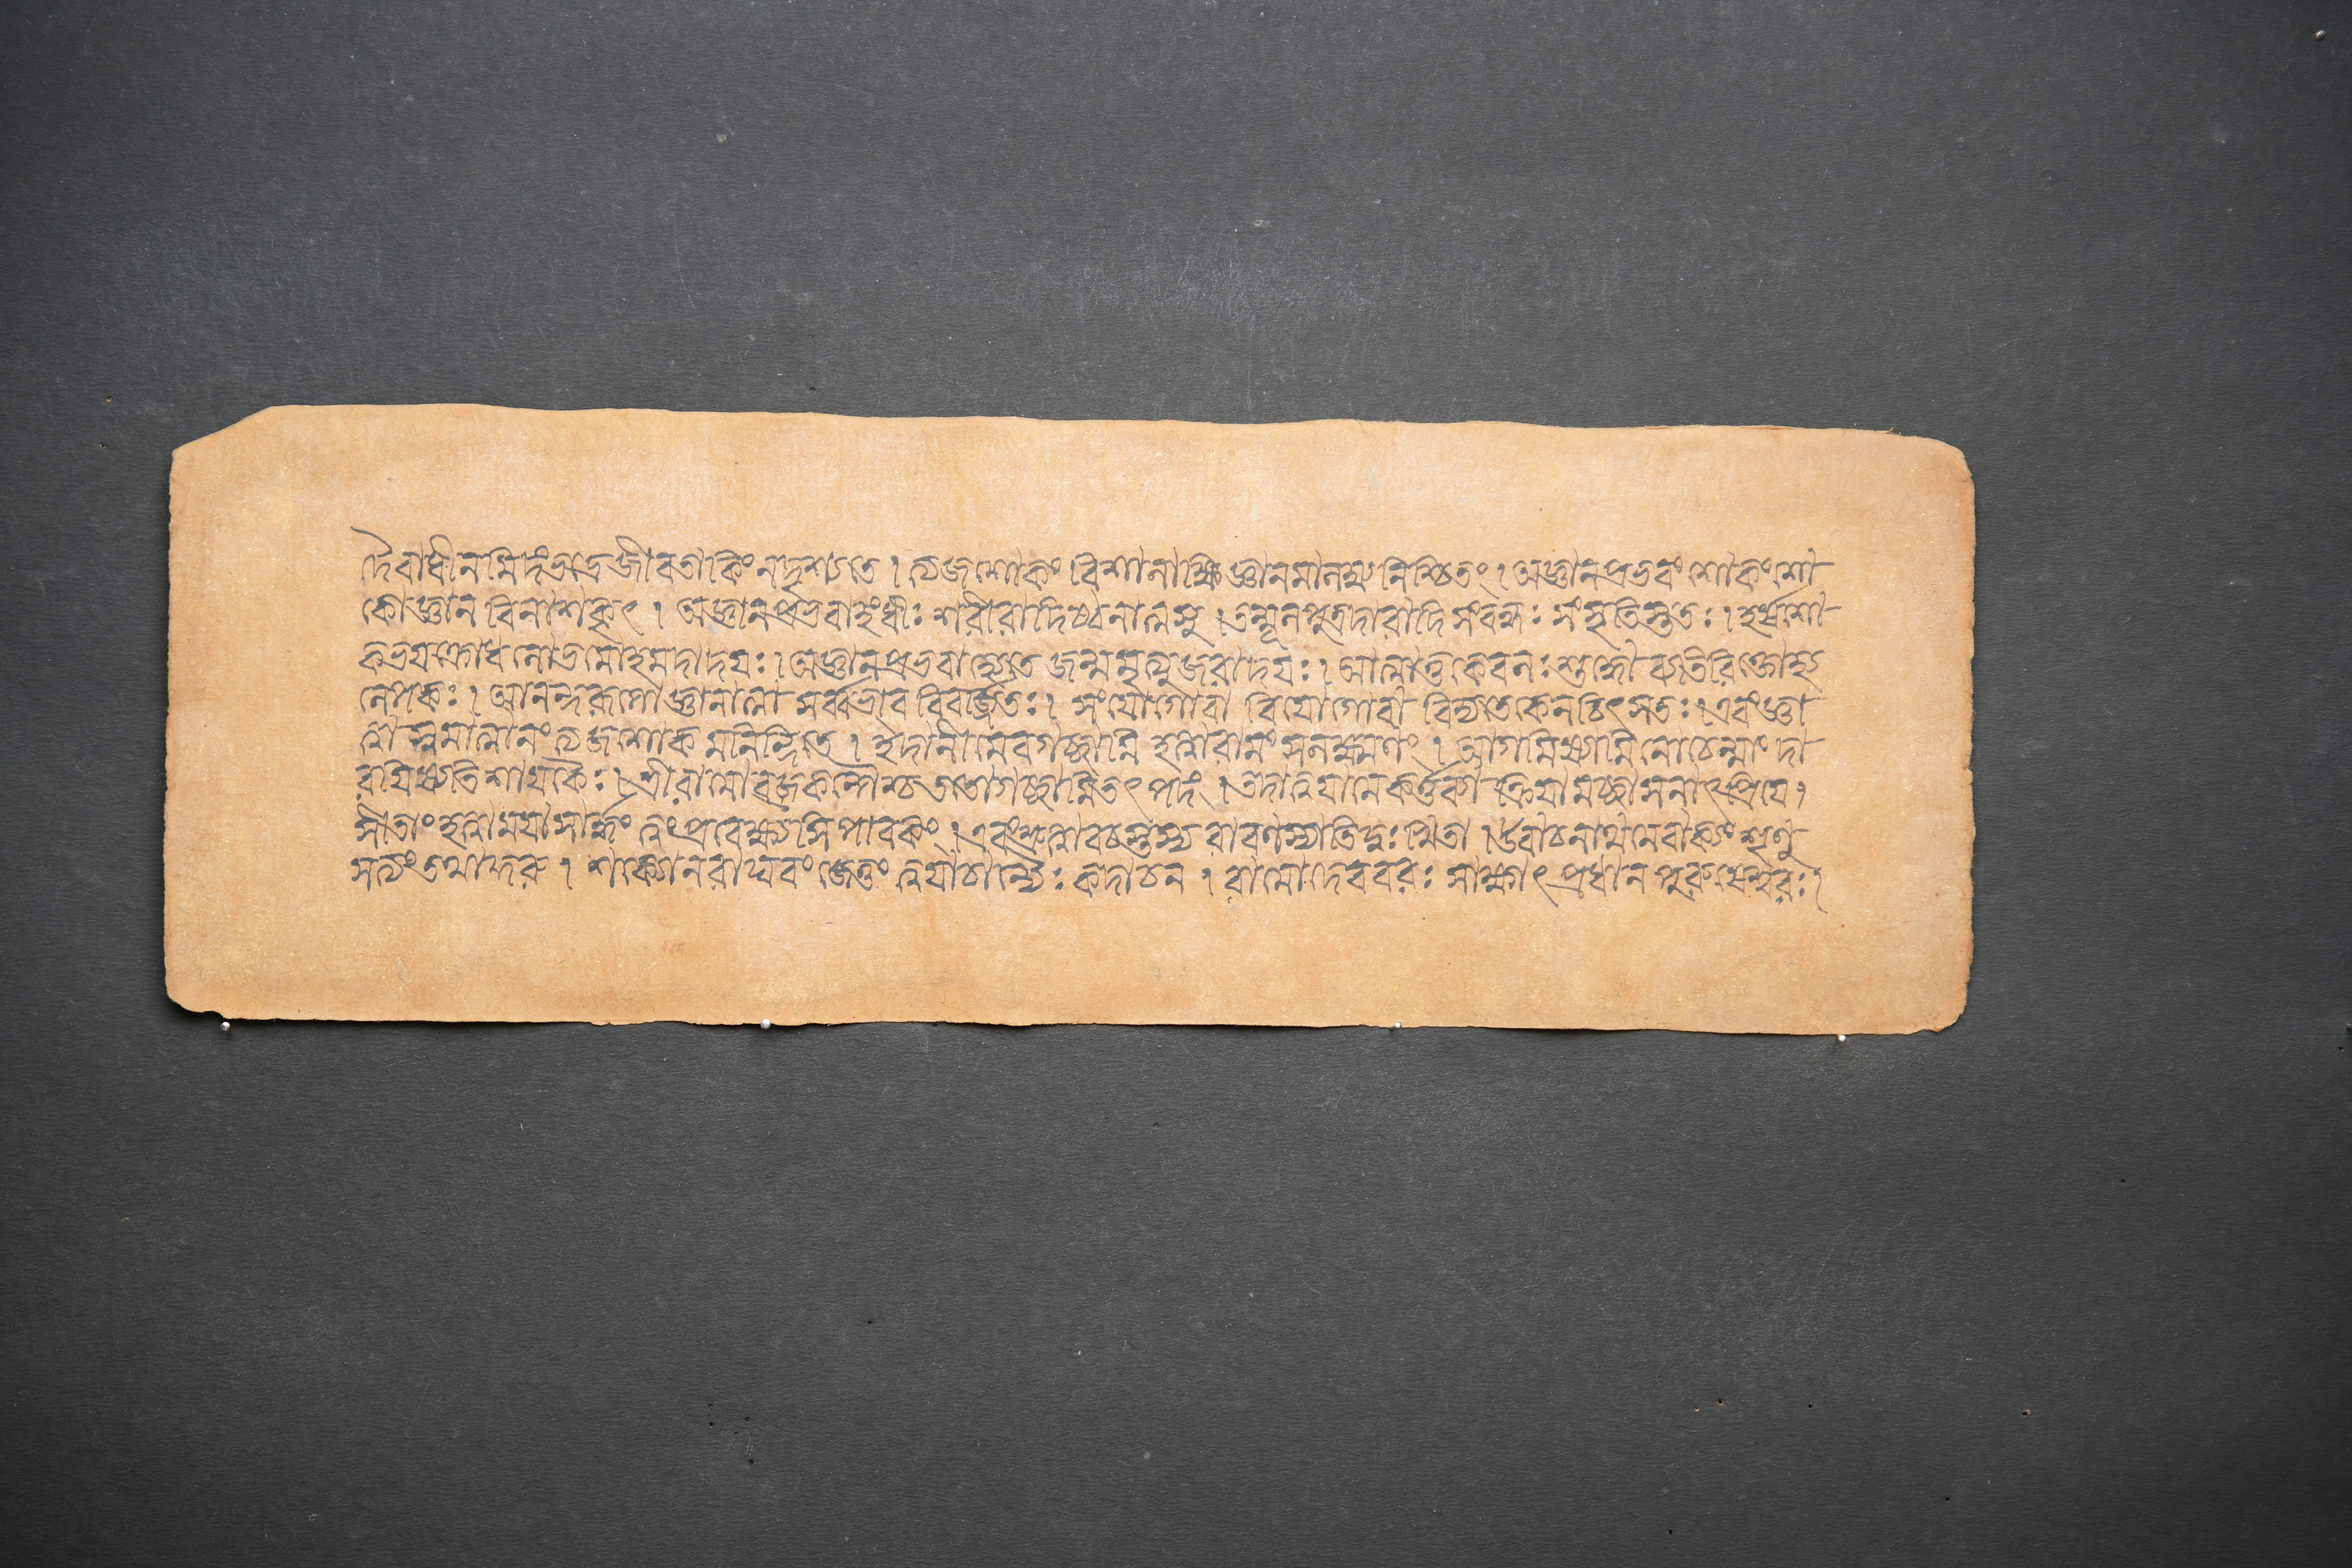 দৈবাধীনমিদং ভদ্রে জীবতা কিং ন দৃশ্যতে । ত্যজশোকং বিশালাক্ষি জ্ঞানমালম্ব্য নিশ্চিতং । অজ্ঞানপ্রভবং শোকং শো
কো জ্ঞান বিনাশকৃৎ । অজ্ঞানপ্রভবাহংধীঃ শরীরাদিষ্বনাত্মসু । তন্মূলপুত্রদারাদিসংবন্ধঃ সংসৃতিস্ততঃ । হর্ষশো
কভয়ক্রোধলোভমোহমদাদয়ঃ । অজ্ঞানপ্রভবাহ্যেতে জন্মমৃত্যুজরাদয়ঃ । আত্মাতুকেবলঃ শুদ্ধো ব্যতিরিক্তোহ্য
লেপকঃ । আনন্দরূপোজ্ঞানাত্মা সর্ব্বভাব বিবর্জ্জিতঃ । সংযোগোবা বিয়োগোবা বিদ্যতেকেনচিৎসতঃ । এবংজ্ঞা
ত্বাস্বমাত্মানং ত্যজশোক মনিন্দিতে । ইদানীমেবগচ্ছামি হত্বারামং সলক্ষ্মণং । আগমিষ্যামি নোচেন্মাং দা
রয়িষ্যতি শায়কৈঃ । শ্রীরামোবজ্রকল্পৈশ্চ ততোগচ্ছামিতৎপদং । তদাত্বয়ামেকর্ত্তব্যা ক্রিয়ামচ্ছাসনাৎপ্রিয়ে ।
সীতাং হত্বাময়াসার্দ্ধং ত্বংপ্রবেক্ষ্যসি পাবকং । এবংশ্রুত্বাবচস্তস্য রাবণস্যাতিদুঃখিতা । উবাচনাথমেবাক্যং শৃণু
সত্যংতথাকুরু । শক্যোনরাঘবং জেতুং ত্বয়াচান্যৈঃ কদাচন । রামোদেববরঃ সাক্ষাৎপ্রধান পুরুষেশ্বরঃ ।